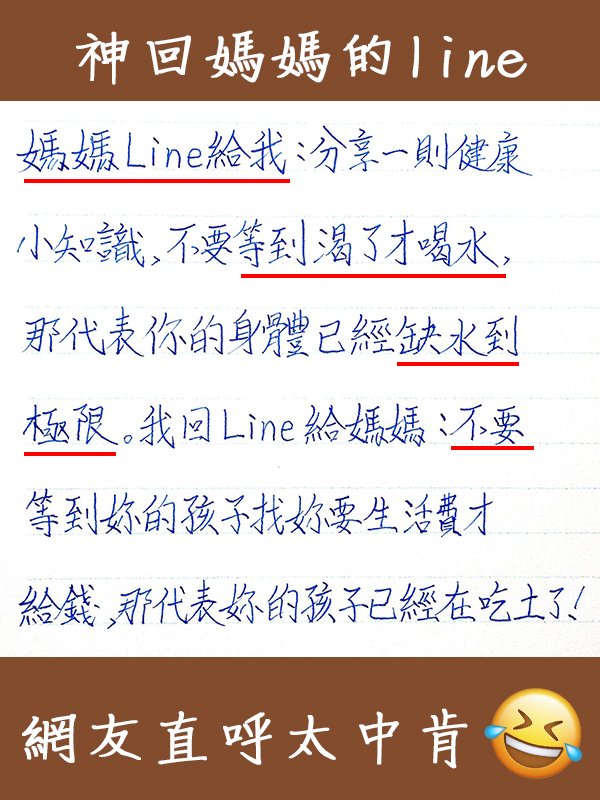 神回媽媽的line
媽媽Line給我:分享一則健康
小知識,不要等到渴了才喝水,
那代表你的身體已經缺水到
極限。我回Line給媽媽:不要
等到妳的孩子找妳要生活費才
給錢,那代表妳的孩子已經在吃土了!
網友直呼太中肯